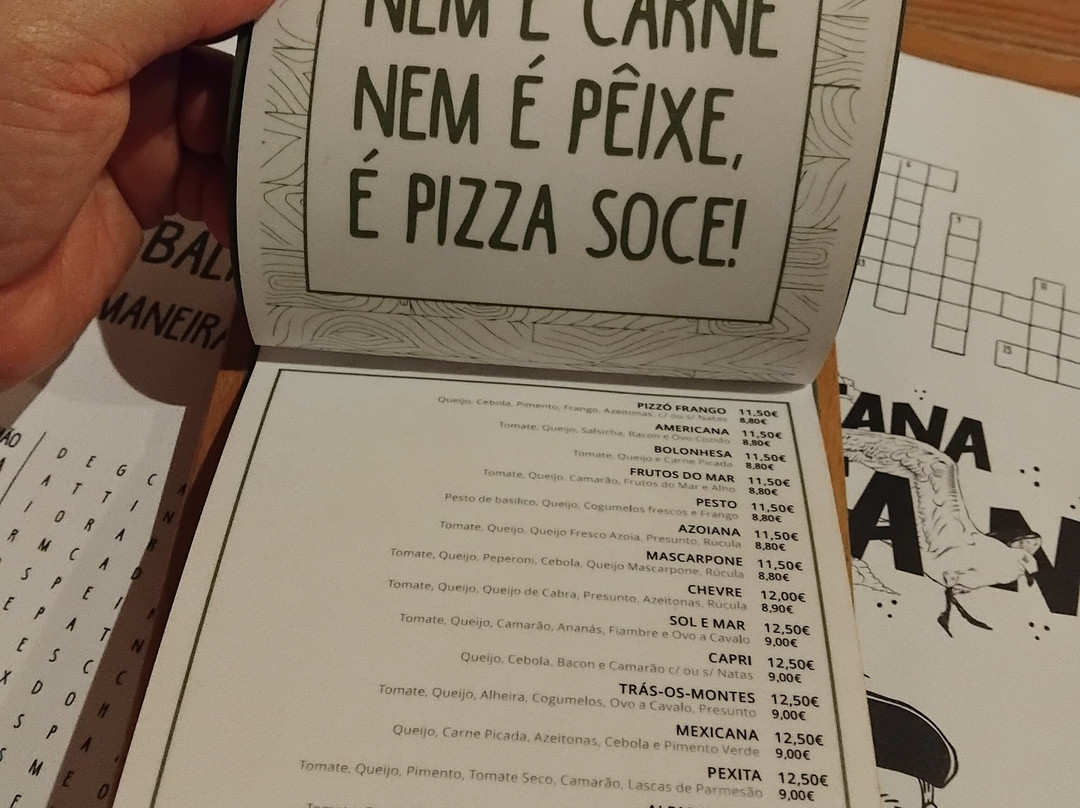 NEM É CARNE
NEM É PÊIXE,
É PIZZA SOCE!
BAL
MANEIRA
PIZZÓ FRANGO 11,50€
Queijo, Cebola, Pimento, Frango, Azeitonas, c/ ou s/ Natas 8,80€
AMERICANA 11,50€
Tomate, Queijo, Salsicha, Bacon e Ovo Cozido 8,80€
BOLONHESA 11,50€
Tomate, Queijo e Carne Picada 8,80€
FRUTOS DO MAR 11,50€
Tomate, Queijo, Camarão, Frutos do Mar e Alho 8,80€
PESTO 11,50€
Pesto de basílico, Queijo, Cogumelos frescos e Frango 8,80€
AZOIANA 11,50€
Tomate, Queijo, Queijo Fresco Azoia, Presunto, Rúcula 8,80€
MASCARPONE 11,50€
Tomate, Queijo, Peperoni, Cebola, Queijo Mascarpone, Rúcula 8,80€
CHEVRE 12,00€
Tomate, Queijo, Queijo de Cabra, Presunto, Azeitonas, Rúcula 8,90€
SOL E MAR 12,50€
Tomate, Queijo, Camarão, Ananás, Fiambre e Ovo a Cavalo 9,00€
CAPRI 12,50€
Queijo, Cebola, Bacon e Camarão c/ ou s/ Natas 9,00€
TRÁS-OS-MONTES 12,50€
Tomate, Queijo, Alheira, Cogumelos, Ovo a Cavalo, Presunto 9,00€
MEXICANA 12,50€
Queijo, Carne Picada, Azeitonas, Cebola e Pimento Verde 9,00€
PEXITA 12,50€
Tomate, Queijo, Pimento, Tomate Seco, Camarão, Lascas de Parmesão 9,00€
ANA
AN